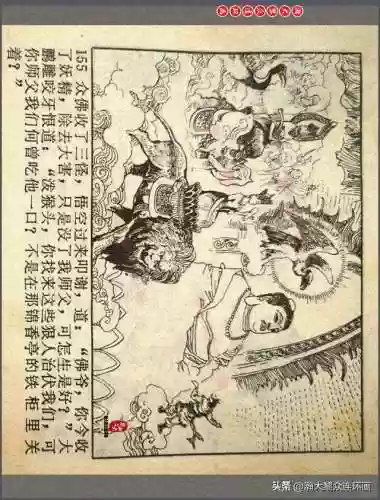 155 众佛收了三怪，悟空过来叩谢，道：“佛爷，你今收
了妖精，除去大害，只是没了我师父，可怎生是好？”大
鹏雕咬牙恨道：“泼猴头，你找来这些狠人治伏我们，可
你师父我们何曾吃他一口？不是在那锦香亭的铁柜里关
着？”
头条 @瀚大黎众连环画